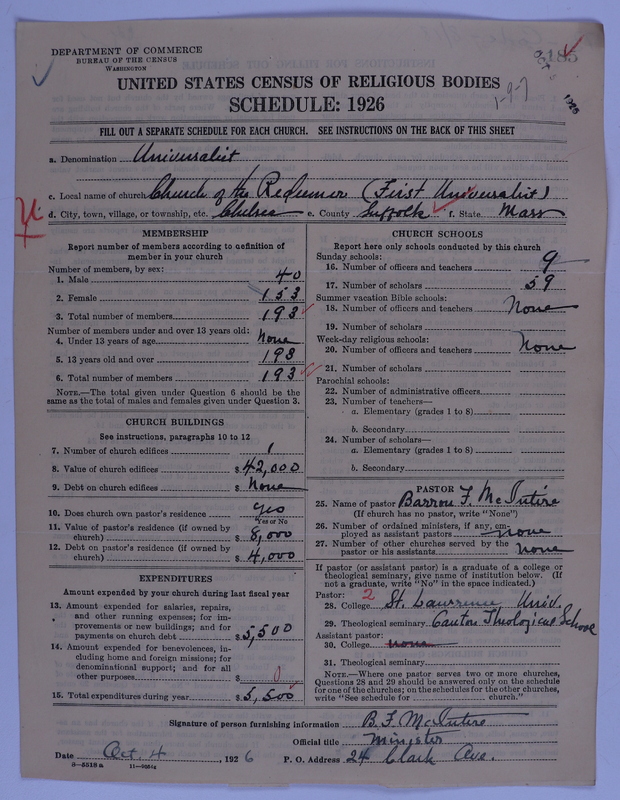 DEPARTMENT OF COMMERCE
BUREAU OF THE CENSUS
WASHINGTON
1926
1-9-7
UNITED STATES CENSUS OF RELIGIOUS BODIES
SCHEDULE: 1926
FILL OUT A SEPARATE SCHEDULE FOR EACH CHURCH. SEE INSTRUCTIONS ON THE BACK OF THIS SHEET
a. Denomination Universalist
c. Local name of church Church of the Redeemer (First Universalist)
d. City, town, village, or township, etc. Chelsea e. County Suffolk f. State Mass
MEMBERSHIP
Report number of members according to definition of
member in your church
Number of members, by sex:
1. Male 40
2. Female 153
3. Total number of members 193
Number of members under and over 13 years old:
4. Under 13 years of age None
5. 13 years old and over 193
6. Total number of members 193
NOTE.—The total given under Question 6 should be the
same as the total of males and females given under Question 3.
CHURCH BUILDINGS
See instructions, paragraphs 10 to 12
7. Number of church edifices 1
8. Value of church edifices $42,000
9. Debt on church edifices $ None
10. Does church own pastor's residence yes
Yes or No
11. Value of pastor's residence (if owned by
church) $ 8,000
12. Debt on pastor's residence (if owned by
church) $ 4,000
EXPENDITURES
Amount expended by your church during last fiscal year
13. Amount expended for salaries, repairs,
and other running expenses; for im-
provements or new buildings; and for
payments on church debt $5,500
14. Amount expended for benevolences, in-
cluding home and foreign missions; for
denominational support; and for all
other purposes $ 0
15. Total expenditures during year $5,500
CHURCH SCHOOLS
Report here only schools conducted by this church
Sunday schools:
16. Number of officers and teachers 9
17. Number of scholars 59
Summer vacation Bible schools:
18. Number of officers and teachers None
19. Number of scholars
Week-day religious schools:
20. Number of officers and teachers None
21. Number of scholars
Parochial schools:
22. Number of administrative officers
23. Number of teachers—
a. Elementary (grades 1 to 8)
b. Secondary
24. Number of scholars—
a. Elementary (grades 1 to 8)
b. Secondary
PASTOR
25. Name of pastor Barron F. McIntire
(If church has no pastor, write "None")
26. Number of ordained ministers, if any, em-
ployed as assistant pastors none
27. Number of other churches served by the
pastor or his assistants none
If pastor (or assistant pastor) is a graduate of a college or
theological seminary, give name of institution below. (If
not a graduate, write "No" in the space indicated.)
Pastor: 2
28. College St. Lawrence Univ.
29. Theological seminary Canton Theological School
Assistant pastor:
30. College none
31. Theological seminary
NOTE.—Where one pastor serves two or more churches,
Questions 28 and 29 should be answered only on the schedule
for one of the churches; on the schedules for the other churches,
write "See schedule for church."
Signature of person furnishing information B. F. McIntire
Official title Minister
Date Oct. 4, 1926 P. O. Address 24 Clark Ave.